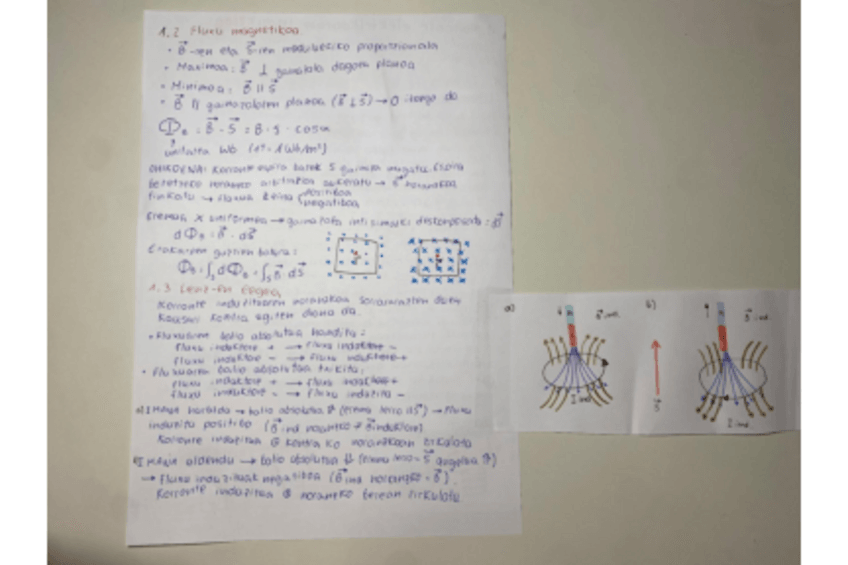 1.2 Fluxu magnetikoa
• B⃗-ren eta S⃗-ren moduluekiko proportzionala
• Maximoa: B⃗ ⊥ gainazala dagoen planoa
• Minimoa: B⃗ || S⃗
• B⃗ || gainazalaren planoa (B⃗ ⊥ S⃗) → 0 izango da
Φ_B = B⃗ · S⃗ = B · S · cosα
unitatea Wb (1T = 1Wb/m²)
Korronte espira batek S gainazala mugatu. Espira
noranzko arbitrarioa aukeratu → S⃗ noranzkoa
finkatu → fluxua zeina positiboa
negatiboa
Eremua X uniformea → gainazala infinitesimalki deskonposatu: dS⃗
dΦ_B = B⃗ · dS⃗
Ekarpen guztien batura:
Φ_B = ∫_S dΦ_B = ∫_S B⃗ · dS⃗
1.3 Lenz-en legea
Korronte induzituaren noranzkoa sorrarazten duen
kausari kontra egiten diona da.
• Fluxuaren balio absolutua handitu:
fluxu induktore + → fluxu induktore -
fluxu induktore - → fluxu induktore +
• Fluxuaren balio absolutua txikitu:
fluxu induktore + → fluxu induktore +
fluxu induktore - → fluxu induzitua -
a) Iman hurbildu → balio absolutua ⇑ (eremu lerro || S⃗) → Fluxu
induzitu positibo (B⃗ ind noranzko ≠ B⃗ induktore)
Korronte induzitua @ kontrako noranzkoan zirkulatu
b) Iman aldendu → balio absolutua ⇓ (eremu lerro = S⃗
→ Fluxu induzituak negatiboa (B⃗ ind noranzko = B⃗)
Korronte induzitua @ noranzko berean zirkulatu
a)
B⃗ ind.
I ind
S⃗
b)
B⃗ ind.
I ind.